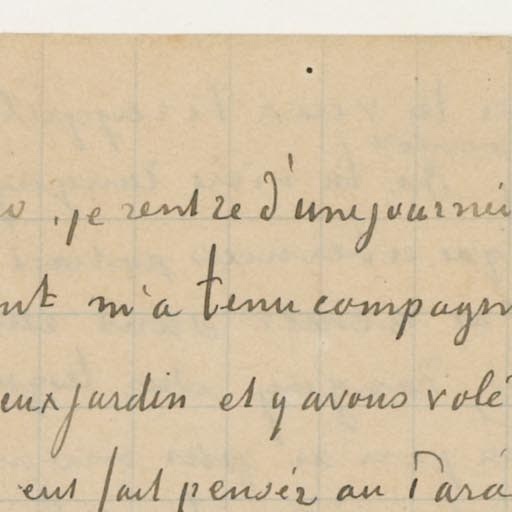 , je rentre d'une journé
nt m'a tenu compagn
eux jardin et y avons volé
ent fait penser au Para